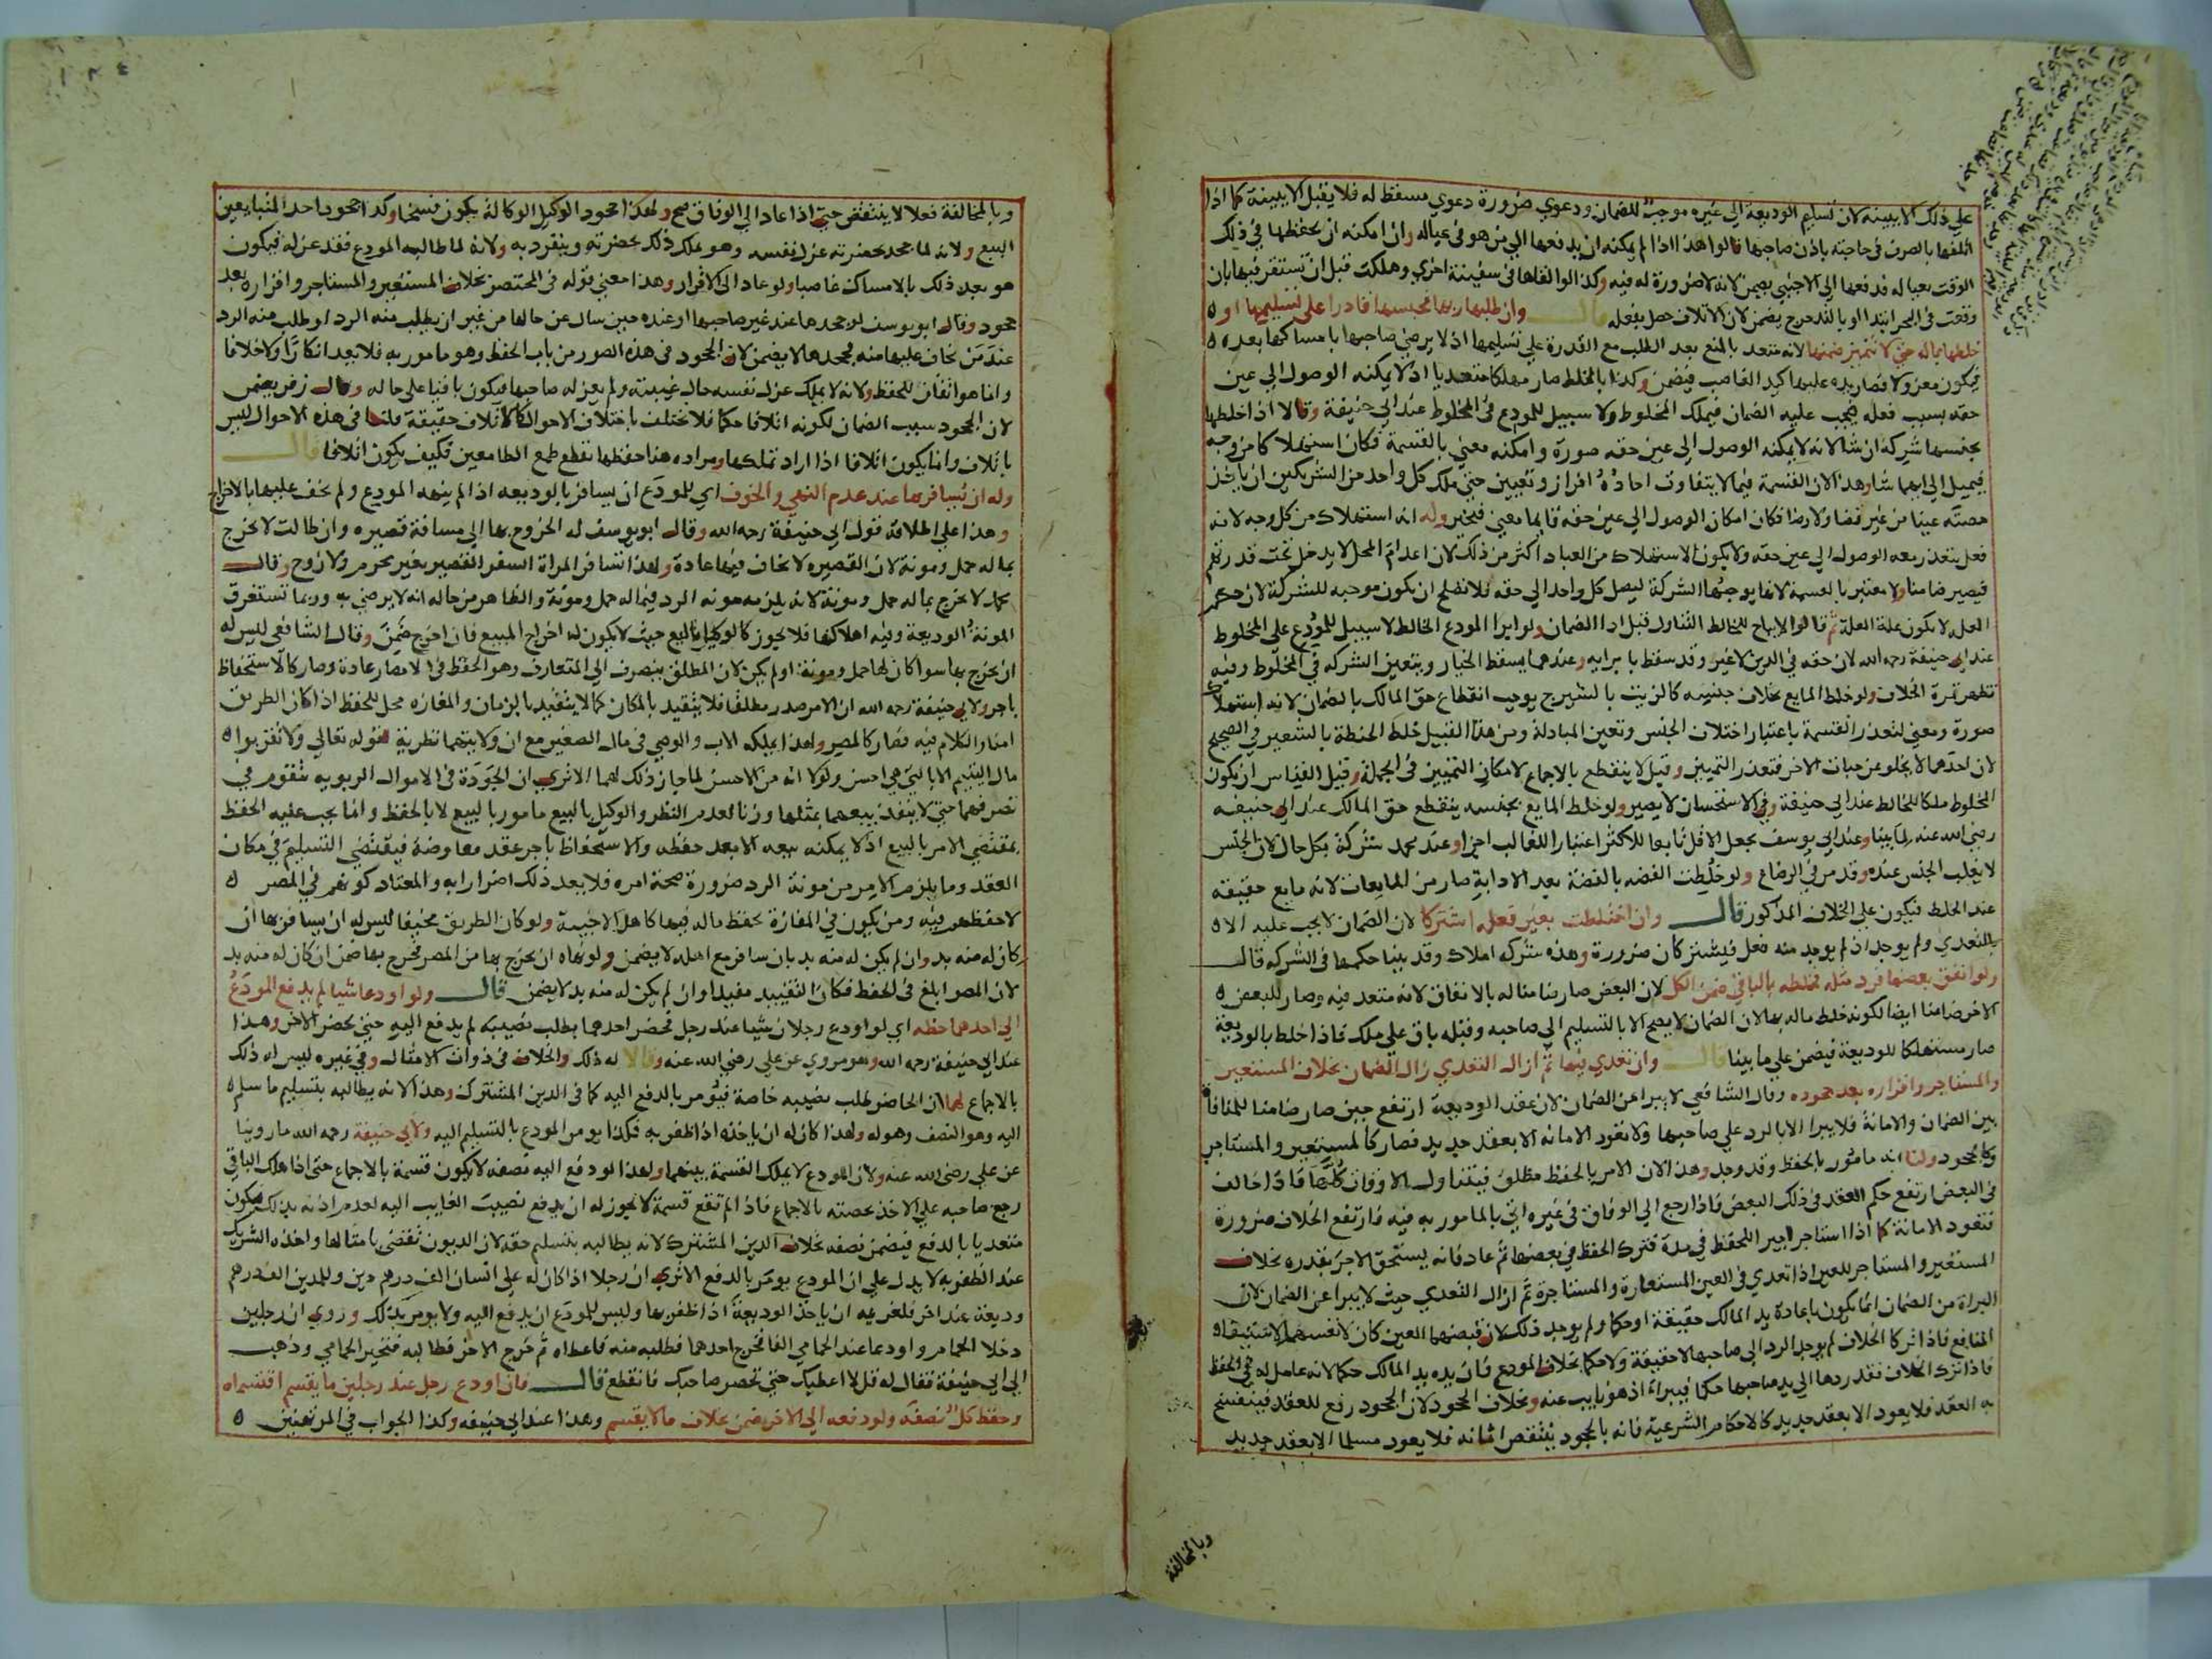 على ذلك الا ببينة لان تسليم الوديعة الى غيره موجب للضمان ودعوي ضرورة دعوي مسقط له فلا يقبل الا ببينة كما اذا
اتلفها بالصرف في حاجته باذن صاحبها قالوا هذا اذا لم يمكنه ان يدفعها الي من هو في عياله وان امكنه ان يحفظها في ذلك
الوقت بعياله فدفعها الى الاجنبي يضمن لانه لا ضرورة له فيه وكذا لو القاها في سفينة اخري وهلكت قبل ان تستقر فيها بان
وقعت في البحر ابتدا او بالتدحرج يضمن لان الاتلاف حصل بفعله قال وان طلبها ربها فحبسها قادرا على تسليمها او
خلطها بماله حتى لا تتميز ضمنها لانه متعد بالمنع بعد الطلب مع القدرة على تسليمها اذ لا يرضي صاحبها بامساكها بعده
فيكون معزولا فصار يده عليها كيد الغاصب فيضمن وكذا بالخلط صار مهلكا متعديا اذ لا يمكنه الوصول الى عين
حقه بسبب فعله فيجب عليه الضمان فيملك المخلوط ولا سبيل للمودع في المخلوط عند ابي حنيفة وقالا اذا خلطها
بجنسها شركه ان شا لانه لا يمكنه الوصول الى عين حقه صورة وامكنه معني بالقسمة فكان استهلاكا من وجه
فيميل الى ايهما شا وهذا لان القسمة فيما لا يتفاوت احاده افراز وتعيين حتى ملك كل واحد من الشريكين ان ياخذ
حصته عينا من غير قضا ولا رضا فكان امكان الوصول الى عين حقه قايما معني فيتخير وله انه استهلاك من كل وجه لانه
فعل يتعذر معه الوصول الى عين حقه ولا يكون الاستهلاك من العباد اكثر من ذلك لان اعدام المحل لا يدخل تحت قدرتهم
فيصير ضامنا ولا معتبر بالقسمة لانها يوجبها الشركة ليصل كل واحد الى حقه فلا تصلح ان يكون موجبه للشركة لان حكم
العلة لا يكون علة العلة ثم قالوا لا يباح للخالط التناول قبل ادا الضمان ولو ابرا المودع الخالط لا سبيل للمودع على المخلوط
عند ابي حنيفة رحمه الله لان حقه في الدين لا غير وقد سقط بابرايه وعندهما يسقط الخيار ويتعين الشركه في المخلوط وفيه
تظهر ثمرة الخلاف ولو خلط المايع بخلاف جنسه كالزيت بالشيرج يوجب انقطاع حق المالك بالضمان لانه استهلاك
صورة ومعنى لتعذر القسمة باعتبار اختلاف الجنس وتعين المبادلة ومن هذا القبيل خلط الحنطة بالشعير في الصحيح
لان احدهما لا يخلو عن حبات الاخر فتعذر التمييز وقيل لا ينقطع بالاجماع لامكان التمييز في الجملة وقيل القياس ان يكون
المخلوط ملكا للخالط عند ابي حنيفة وفي الاستحسان لا يصير ولو خلط المايع بجنسه ينقطع حق المالك عند ابي حنيفه
رضي الله عنه لما بينا وعند ابي يوسف يجعل الاقل تابعا للاكثر اعتبارا للغالب اجزا وعند محمد شركة بكل حال لان الجنس
لا يغلب الجنس عنده وقد مر في الرضاع ولو خلطت الفضه بالفضة بعد الاذابة صار من المايعات لانه مايع حقيقة
عند الخلط فيكون على الخلاف المذكور قال وان اختلطت بغير فعله اشتركا لان الضمان لا يجب عليه الا
بالتعدي ولم يوجد اذ لم يوجد منه فعل فيشتركان ضرورة وهذه شركه املاك وقد بينا حكمها في الشركه قال
ولو انفق بعضها فرد مثله فخلطه بالباقي ضمن الكل لان البعض صار ضامنا له بالانفاق لانه متعد فيه وصار للبعض
الاخر ضامنا ايضا لكونه خلط ماله بها لان الضمان لا يصح الا بالتسليم الى صاحبه وقبله باق على ملكه فاذا خلط بالوديعة
صار مستهلكا للوديعة فيضمن على ما بينا قال وان تعدي فيها ثم ازال التعدي زال الضمان بخلاف المستعير
والمستاجر واقراره بعد جحوده وقال الشافعي لا يبرا عن الضمان لان عقد الوديعة ارتفع حين صار ضامنا للمنافاة
بين الضمان والامانة فلا يبرا الا بالرد على صاحبها ولا تعود الامانه الا بعقد جديد فصار كالمستعير والمستاجر
وكالجحود ولنا انه مامور بالحفظ وقد وجد وهذا لان الامر بالحفظ مطلق فيتناول الاوقات كلها فاذا خالف
في البعض ارتفع حكم العقد في ذلك البعض فاذا رجع الى الوفاق في غيره اتى بالمامور به فيه فارتفع الخلاف ضرورة
فتعود الامانة كما اذا استاجر اجيرا للحفظ في مدة فترك الحفظ في بعضها ثم عاد فانه يستحق الاجر بقدره بخلاف
المستعير والمستاجر للعين اذا تعدي في العين المستعارة والمستاجرة ثم ازال التعدي حيث لا يبرا عن الضمان لان
البراة من الضمان انما يكون باعادة يد المالك حقيقة او حكما ولم يوجد ذلك لان قبضهما العين كان لانفسهما لاستيفا
المنافع فاذا تركا الخلاف لم يوجد الرد الى صاحبها لا حقيقة ولا حكما بخلاف المودع فان يده يد المالك حكما لانه عامل له في الحفظ
فاذا ترك الخلاف فقد ردها الى يد صاحبها حكما فيبرا اذ هو نايب عنه وبخلاف الجحود لان الجحود رفع للعقد فينفسخ
به العقد فلا يعود الا بعقد جديد كالاحكام الشرعية فانه بالجحود ينتقض ايمانه فلا يعود مسلما الا بعقد جديد
وبالمخالفة
وبالمخالفة فعلا لا ينتقض حتى اذا عاد الى الوفاق صح ولهذا جحود الوكيل الوكالة يكون فسخا وكذا جحود احد المتبايعين
البيع ولانه لما جحد بحضرته عزل نفسه وهو يملك ذلك بحضرته وينفرد به ولانه لما طالبه المودع فقد عزله فيكون
هو بعد ذلك بالامساك غاصبا ولو عاد الى الاقرار وهذا معني قوله في المختصر بخلاف المستعير والمستاجر واقراره بعد
جحود وقال ابو يوسف لو جحدها عند غير صاحبها او عنده حين سال عن حالها من غير ان يطلب منه الرد او طلب منه الرد
عند من يخاف عليها منه فجحدها لا يضمن لان الجحود في هذه الصور من باب الحفظ وهو مامور به فلا يعد انكارا ولا خلافا
وانما هو اتقان للحفظ ولانه لا يملك عزل نفسه حال غيبته ولم يعزله صاحبها فيكون باقيا على حاله وقال زفر يضمن
لان الجحود سبب الضمان لكونه اتلافا حكما فلا يختلف باختلاف الاحوال كالاتلاف حقيقة قلنا في هذه الاحوال ليس
باتلاف وانما يكون اتلافا اذا اراد تملكها ومراده هنا حفظها بقطع طمع الطامعين فكيف يكون اتلافا قال
وله ان يسافر بها عند عدم النهي والخوف اي للمودع ان يسافر بالوديعه اذا لم ينهه المودع ولم يخف عليها بالاخراج
وهذا على اطلاقه قول ابي حنيفة رحمه الله وقال ابو يوسف له الخروج بها الى مسافة قصيره وان طالت لا يخرج
بما له حمل ومونة لان القصيره لا يخاف فيها عادة ولهذا تسافر المراة السفر القصير بغير محرم ولا زوج وقال
محمد لا يخرج بما له حمل ومونة لانه يلزمه مونه الرد فيما له حمل ومونة والظاهر من حاله انه لا يرضي به وربما تستغرق
المونة الوديعة وفيه اهلاكها فلا يجوز كالوكيل بالبيع حيث لا يكون له اخراج المبيع فان اخرج ضمن وقال الشافعي ليس له
ان يخرج بها سوا كان لها حمل ومونة او لم يكن لان المطلق ينصرف الى المتعارف وهو الحفظ في الامصار عادة وصار كالاستحفاظ
باجر ولابي حنيفة رحمه الله ان الامر صدر مطلقا فلا يتقيد بالمكان كما لا يتقيد بالزمان والمفازه محل للحفظ اذا كان الطريق
امنا والكلام فيه فصار كالمصر ولهذا يملكه الاب والوصي في مال الصغير مع ان ولايتهما نظرية لقوله تعالى ولا تقربوا
مال اليتيم الا بالتي هي احسن ولولا انه من الاحسن لما جاز ذلك لهما الا تري ان الجودة في الاموال الربويه تتقوم في
تصرفهما حتى لا ينفذ بيعهما بمثلها وزنا لعدم النظر والوكيل بالبيع مامور بالبيع لا بالحفظ وانما يجب عليه الحفظ
بمقتضى الامر بالبيع اذ لا يمكنه بيعه الا بعد حفظه والاستحفاظ باجر عقد معاوضة فيقتضي التسليم في مكان
العقد وما يلزم الامر من مونة الرد ضرورة صحة امره فلا يعد ذلك اضرارا به والمعتاد كونهم في المصر
لا حفظهم فيه ومن يكون في المفازة يحفظ ماله فيها كاهل الاخبية ولو كان الطريق مخيفا ليس له ان يسافر بها ان
كان له منه بد وان لم يكن له منه بد بان سافر مع اهله لا يضمن ولو نهاه ان يخرج بها من المصر فخرج بها ضمن ان كان له منه بد
لان المصر ابلغ في الحفظ فكان التقييد مفيدا وان لم يكن له منه بد لا يضمن قال ولو اودعا شيا لم يدفع المودع
الى احدهما حظه اي لو اودع رجلان شيا عند رجل فحضر احدهما يطلب نصيبه لم يدفع اليه حتى يحضر الاخر وهذا
عند ابي حنيفة رحمه الله وهو مروي عن علي رضي الله عنه وقالا له ذلك والخلاف في ذوات الامثال وفي غيره ليس له ذلك
بالاجماع لهما ان الحاضر طلب نصيبه خاصة فيومر بالدفع اليه كما في الدين المشترك وهذا لانه يطالبه بتسليم ما سلم
اليه وهو النصف وهو له ولهذا كان له ان ياخذه اذا ظفر به فكذا يومر المودع بالتسليم اليه ولابي حنيفة رحمه الله ما روينا
عن علي رضي الله عنه ولان المودع لا يملك القسمة بينهما ولهذا لو دفع اليه نصفه لا يكون قسمة بالاجماع حتى اذا هلك الباقي
رجع صاحبه على الاخذ بحصته بالاجماع فاذا لم تقع قسمة لا يجوز له ان يدفع نصيب الغايب اليه لعدم اذنه بذلك فيكون
متعديا بالدفع فيضمن نصفه بخلاف الدين المشترك لانه يطالبه بتسليم حقه لان الديون تقضي بامثالها واخذه الشريك
عند الظفر به لا يدل على ان المودع يومر بالدفع الا تري ان رجلا اذا كان له على انسان الف درهم دين وللمدين الف درهم
وديعة عند اخر فلغريمه ان ياخذ الوديعة اذا ظفر بها وليس للمودع ان يدفع اليه ولا يومر بذلك وروي ان رجلين
دخلا الحمام واودعا عند الحمامي الفا فخرج احدهما فطلبه منه فاعطاه ثم خرج الاخر فطالبه فتحير الحمامي وذهب
الى ابي حنيفة فقال له قل لا اعطيك حتى تحضر صاحبك فانقطع قال فان اودع رجل عند رجلين ما يقسم اقتسماه
وحفظ كل نصفه ولو دفعه الى الاخر ضمن بخلاف ما لا يقسم وهذا عند ابي حنيفه وكذا الجواب في المرتهنين